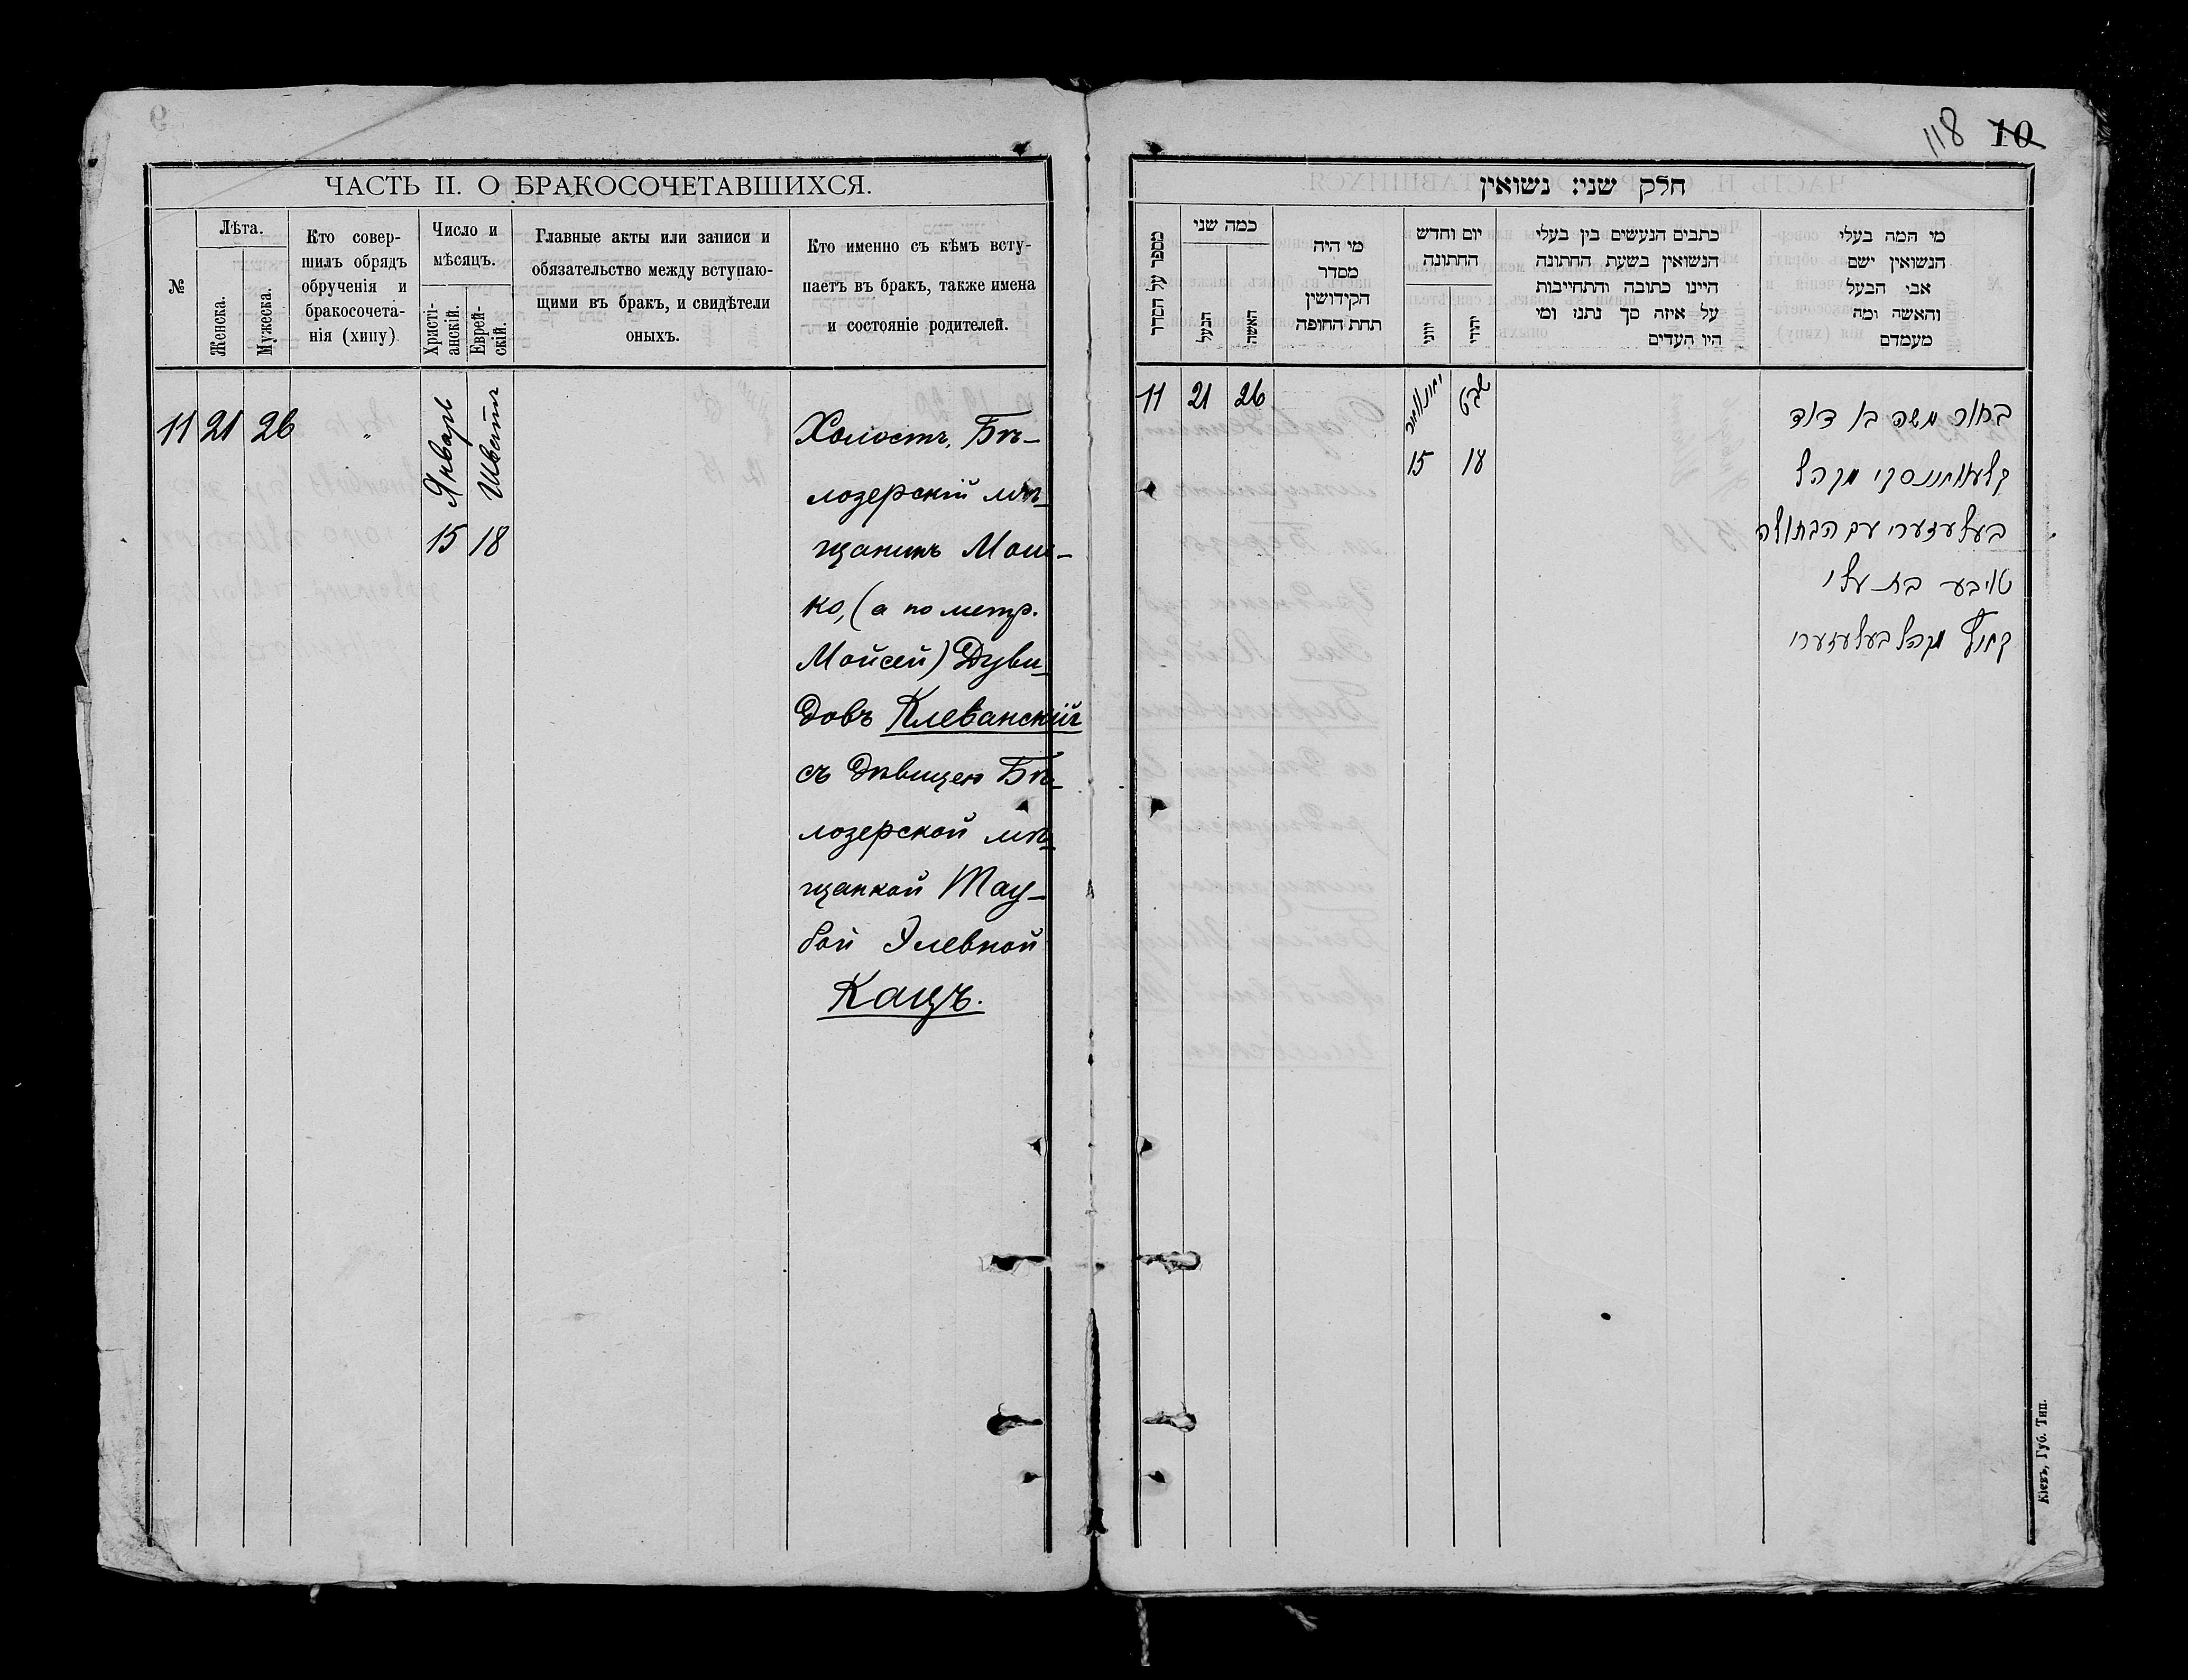 ЧАСТЬ II. О БРАКОСОЧЕТАВШИХСЯ.
№
Лѣта.
Женска.
Мужеска.
Кто совер-
шилъ обрядъ
обрученія и
бракосочета-
нія (хипу)
Число и
мѣсяцъ.
Христі-
анскій.
Еврей-
скій.
Главные акты или записи и
обязательство между вступаю-
щими въ бракъ, и свидѣтели
оныхъ.
Кто именно съ кѣмъ всту-
паетъ въ бракъ, также имена
и состояніе родителей.
11
21
26
„
Январь
15
Шватъ
18
Холостъ, Бѣ-
лозерскій мѣ-
щанинъ Мош-
ко, (а по метр.
Мойсей) Дуви-
довъ Клеванскій
съ дѣвицею Бѣ-
лозерской мѣ-
щанкой Тау-
бой Элевной
Кацъ.
118 10
חלק שני: נשואין
מספר על הסדר
כמה שני
הבעל
האשה
מי היה
מסדר
הקידושין
תחת החופה
יום וחדש
החתונה
יוני
יהודי
כתבים הנעשים בין בעלי
הנשואין בשעת החתונה
היינו כתובה והתחייבות
על איזה סך נתנו ומי
היו העדים
מי המה בעלי
הנשואין ישם
אבי הבעל
והאשה ומה
מעמדם
11
21
26
15
שבט
18
בחור משה בן דוד
מקהל
בעלעזערי עם הבתולה
טויבע בת עלי
מקהל בעלעזערי
Кіевъ, Губ. Тип.